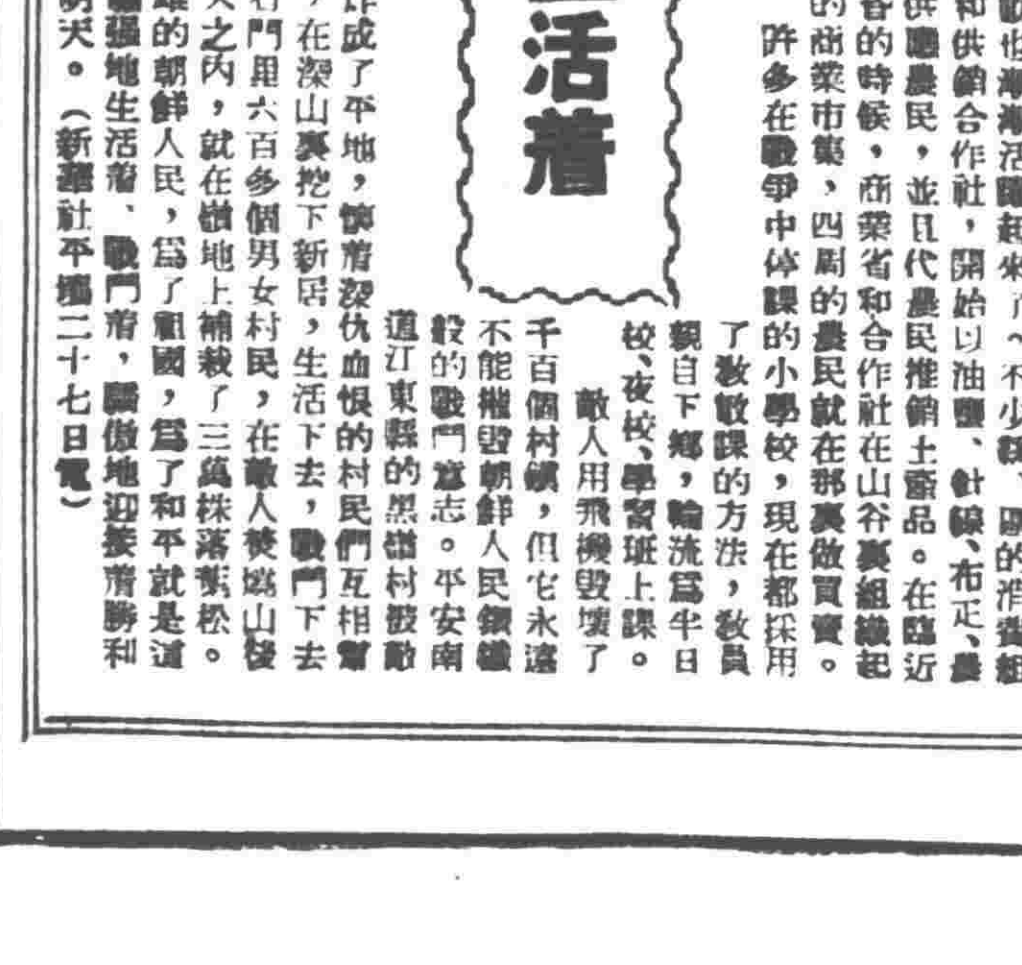 也漸漸活躍起來了。不少縣、區的消費組
和供銷合作社,開始以油鹽、針線、布疋、農
供應農民,並且代農民推銷土產品。在臨近
的時候,商業省和合作社在山谷裏組織起
的商業市集,四周的農民就在那裏做買賣。
許多在戰爭中停課的小學校,現在都採用
了敎課的方法,敎員
親自下鄉,輪流爲半日
校、夜校、學習班上課。
活着
敵人用飛機毀壞了
千百個村鎭,但它永遠
不能摧毀朝鮮人民鋼鐵
般的戰鬥意志。平安南
道江東縣的黑嶺村被敵
炸成了平地,懷着深仇血恨的村民們互相幫
,在深山裏挖下新居,生活下去,戰鬥下去
門里六百多個男女村民,在敵人焚燒山後
天之內,就在嶺地上補栽了三萬株落葉松。
雄的朝鮮人民,爲了祖國,爲了和平就是這
強地生活着、戰鬥着,驕傲地迎接着勝利
明天。(新華社平壤二十七日電)